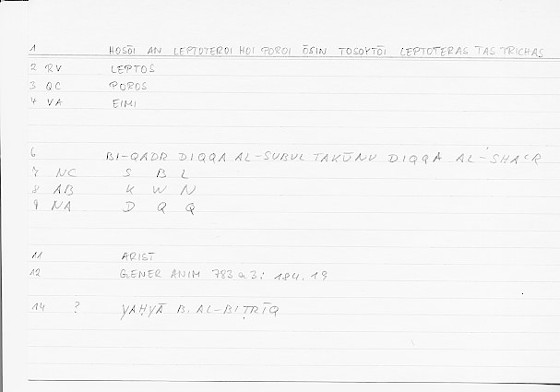 1 HOSŌI AN LEPTOTEROI HOI POROI ŌSIN TOSOYTŌI LEPTOTERAS TAS TRICHAS
2 RV LEPTOS
3 QC POROS
4 VA EIMI
6 BI-QADR DIQQA AL-SUBUL TAKŪNU DIQQA AL-SHAʿR
7 NC S B L
8 AB K W N
9 NA D Q Q
11 ARIST
12 GENER ANIM 783 a 3; 184.19
14 ? YAḤYĀ B. AL-BIṬRĪQ